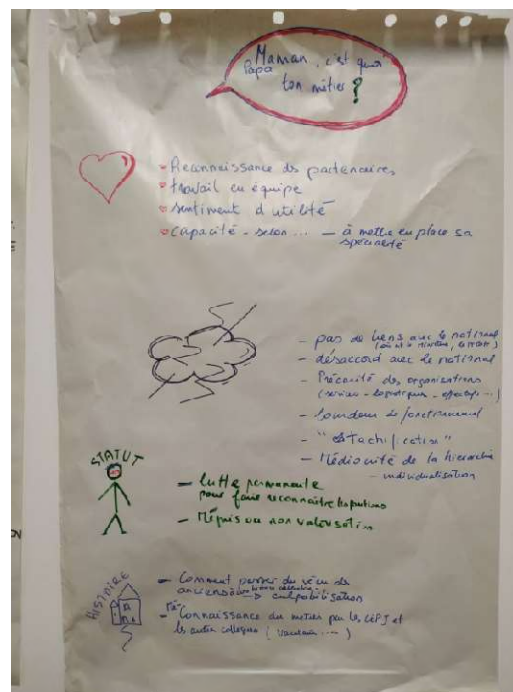 Maman, c'est quoi
Papa
ton métier ?
Reconnaissance des partenaires
travail en équipe
sentiment d'utilité
capacité - selon ... - à mettre en place sa
spécialité
- pas de liens avec le national
- désaccord avec le national
- Précarité des organisations
(services - logistiques - effectifs ...)
- Lourdeur de fonctionnement
- "
- Médiocrité de la hiérarchie
- individualisation
STATUT
- lutte permanente
pour faire reconnaître
- Mépris ou non valorisation
HISTOIRE
- Comment parler du vécu des
anciens
→ culpabilisation
- Connaissance du métier par les CEPJ et
les autres collègues (